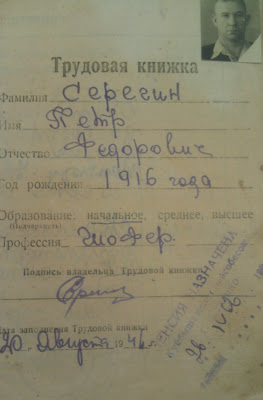 Трудовая книжка
Фамилия Серегин
Имя Петр
Отчество Федорович
Год рождения 1916 года
Образование: начальное, среднее, высшее
(Подчеркнуть)
Профессия Шофер
Подпись владельца Трудовой книжки
Дата заполнения Трудовой книжки
20 Августа 194
ПЕНСИЯ НАЗНАЧЕНА
26 IV